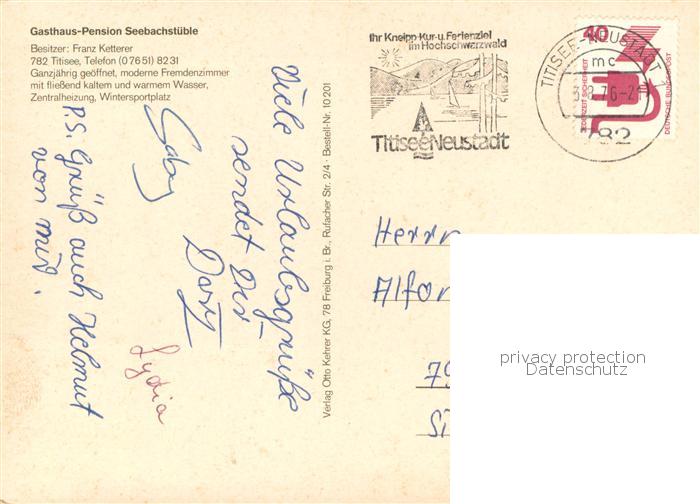 Gasthaus-Pension Seebachstüble
Besitzer: Franz Ketterer
782 Titisee, Telefon (07651) 8231
Ganzjährig geöffnet, moderne Fremdenzimmer
mit fließend kaltem und warmem Wasser,
Zentralheizung, Wintersportplatz
Ihr Kneipp-Kur-u. Ferienziel
im Hochschwarzwald
Titisee Neustadt
TITISEE-NEUSTADT
mc
8.76-2
782
40
JEDERZEIT SICHERHEIT
DEUTSCHE BUNDESPOST
Viele Urlaubsgrüße
sendet Dir
Gaby
Lydia
P.S. Grüß auch Helmut
von mir.
Verlag Otto Kehrer KG, 78 Freiburg i. Br., Rufacher Str. 2/4 · Bestell-Nr. 10 201
Herrn
Alfon
79
privacy protection
Datenschutz